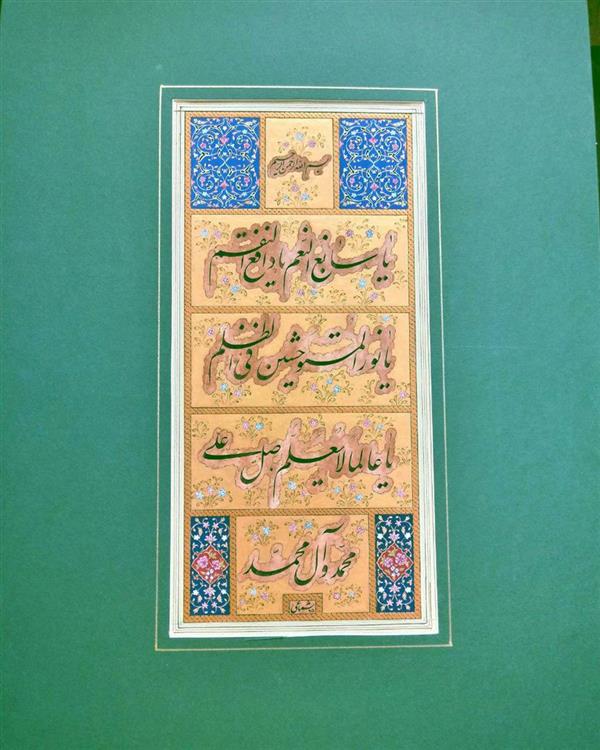 بسم الله الرحمن الرحیم
یا سابغ النعم یا دافع النقم
یا نور المستوحشین فی الظلم
یا عالما لا یعلم صل علی
محمد و آل محمد